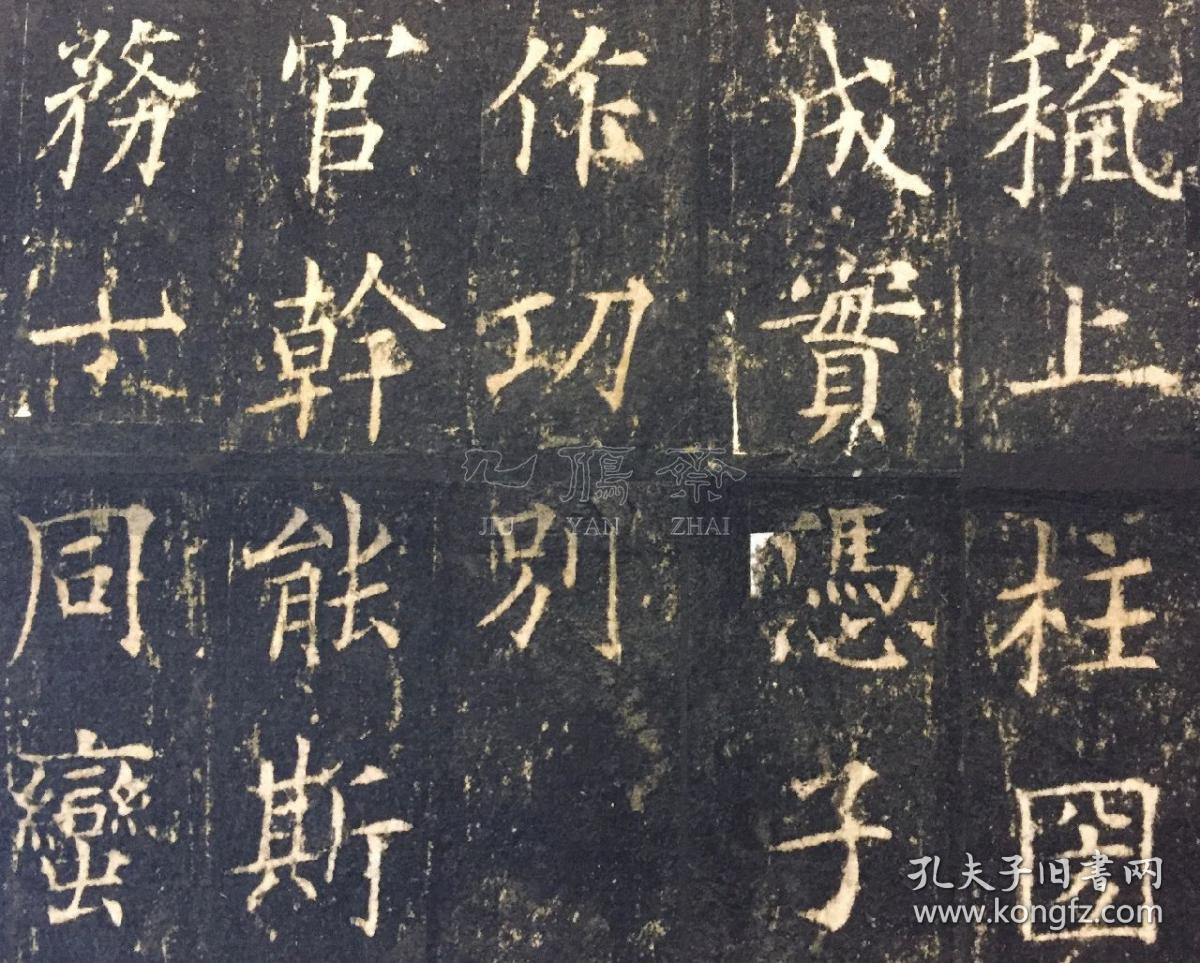 上柱圀
成實憑子
作功別
官幹能斯
務同蠻
JIU YAN ZHAI
孔夫子旧書网
www.kongfz.com